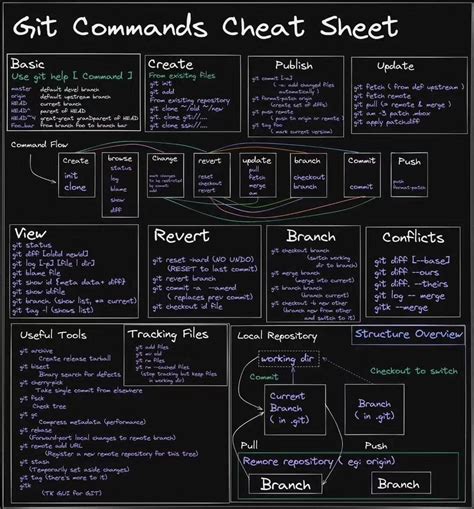 Git Commands Cheat Sheet
Basic
Use git help [ Command ]
master default devel branch
origin default upstream branch
HEAD current branch
HEAD^ parent of HEAD
HEAD~4 great-great grandparent of HEAD
foo..bar from branch foo to branch bar
Create
From existing files
git init
git add
From existing repository
git clone ~/old ~/new
git clone git://...
git clone ssh://...
Publish
git commit [-a]
(-a: add changed files
automatically )
git format-patch origin
(create set of diffs)
git push remote
( push to origin or remote )
git tag foo
( mark current version)
Update
git fetch ( from def upstream )
git fetch remote
git pull (= remote & merge )
git am -3 patch.mbox
git apply patch.diff
Command Flow
Create
init
clone
browse
status
log
blame
show
diff
Change
revert
reset
checkout
revert
update
pull
fetch
merge
am
branch
checkout
branch
Commit
commit
Push
push
format-patch
View
git status
git diff [oldid newid]
git log [-p] [file | dir]
git blame file
git show id (meta data+ diff)
git show id:file
git branch (show list, *= current)
git tag -l (shows list)
Revert
git reset -hard (NO UNDO)
(RESET to last commit)
git revert branch
git commit -a --amend
( replaces prev commit)
git checkout id file
Branch
git checkout branch
(switch working
dir to branch)
git merge branch
(merge into current)
git branch branch
(branch current)
git checkout -b new other
(branch new from other
and switch to it)
Conflicts
git diff [--base]
git diff --ours
git diff --theirs
git log -- merge
gitk -- merge
Useful Tools
git archive
Create release tarball
git bisect
Binary search for defects
git cherry-pick
Take single commit from elsewhere
git fsck
Check tree
git gc
Compress metadata (performance)
git rebase
(Forward-port local changes to remote branch)
git remote add URL
(Register a new remote repository for this tree)
git stash
(Temporarily set aside changes)
git tag (there's more to it)
gitk
(TK GUI for GIT)
Tracking Files
git add files
git mv old
git rm files
git rm --cached files
(stop tracking but keep files
in working dir)
Local Repository
Structure Overview
working dir
Commit
Checkout to switch
Current
Branch
( in .git)
Branch
( in .git)
Pull
Push
Remore repository ( eg: origin)
Branch
Branch